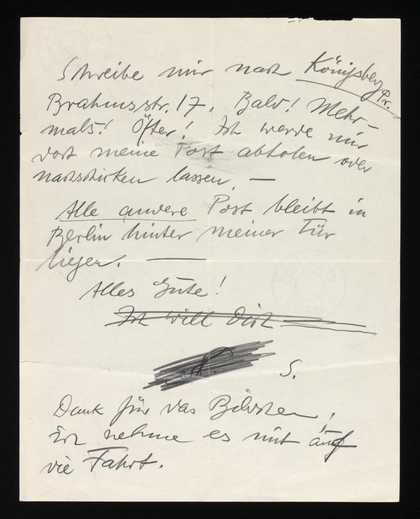 Schreibe mir nach Königsberg Pr.
Brahmsstr. 17. Bald! Mehr-
mals! Öfter! Ich werde mir
dort meine Post abholen oder
nachschicken lassen. —
Alle andere Post bleibt in
Berlin hinter meiner Tür
liegen. —
Alles Gute!
Ich will Dich
S.
Dank für das Bildchen!
Ich nehme es mit auf
die Fahrt.